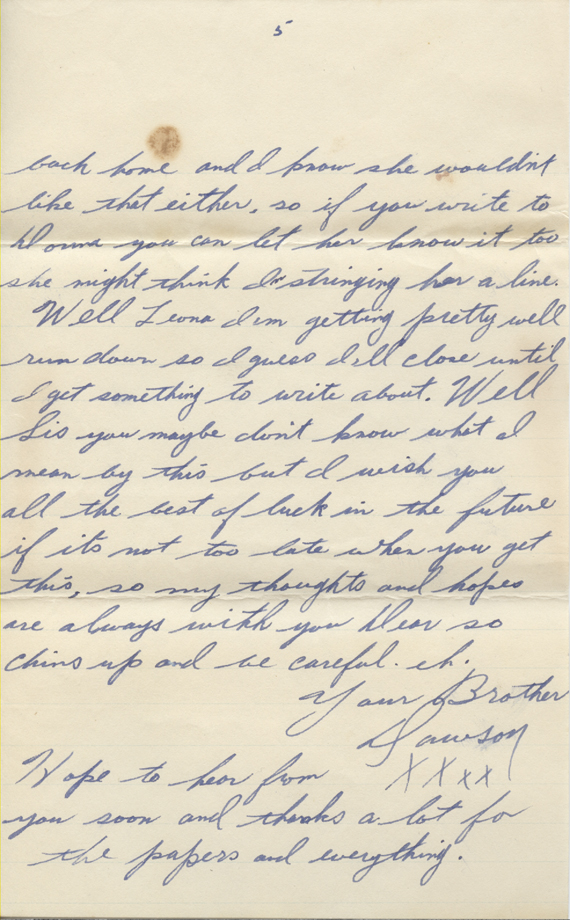 5
back home and I know she wouldn't
like that either, so if you write to
Donna you can let her know it too
she might think I'm stringing her a line.
Well Leona I'm getting pretty well
run down so I guess I'll close until
I get something to write about. Well
Sis you maybe don't know what I
mean by this but I wish you
all the best of luck in the future
if its not too late when you get
this, so my thoughts and hopes
are always with you Dear so
chins up and be careful. eh.
Your Brother
Dawson
XXxx
Hope to hear from
you soon and thanks a lot for
the papers and everything.